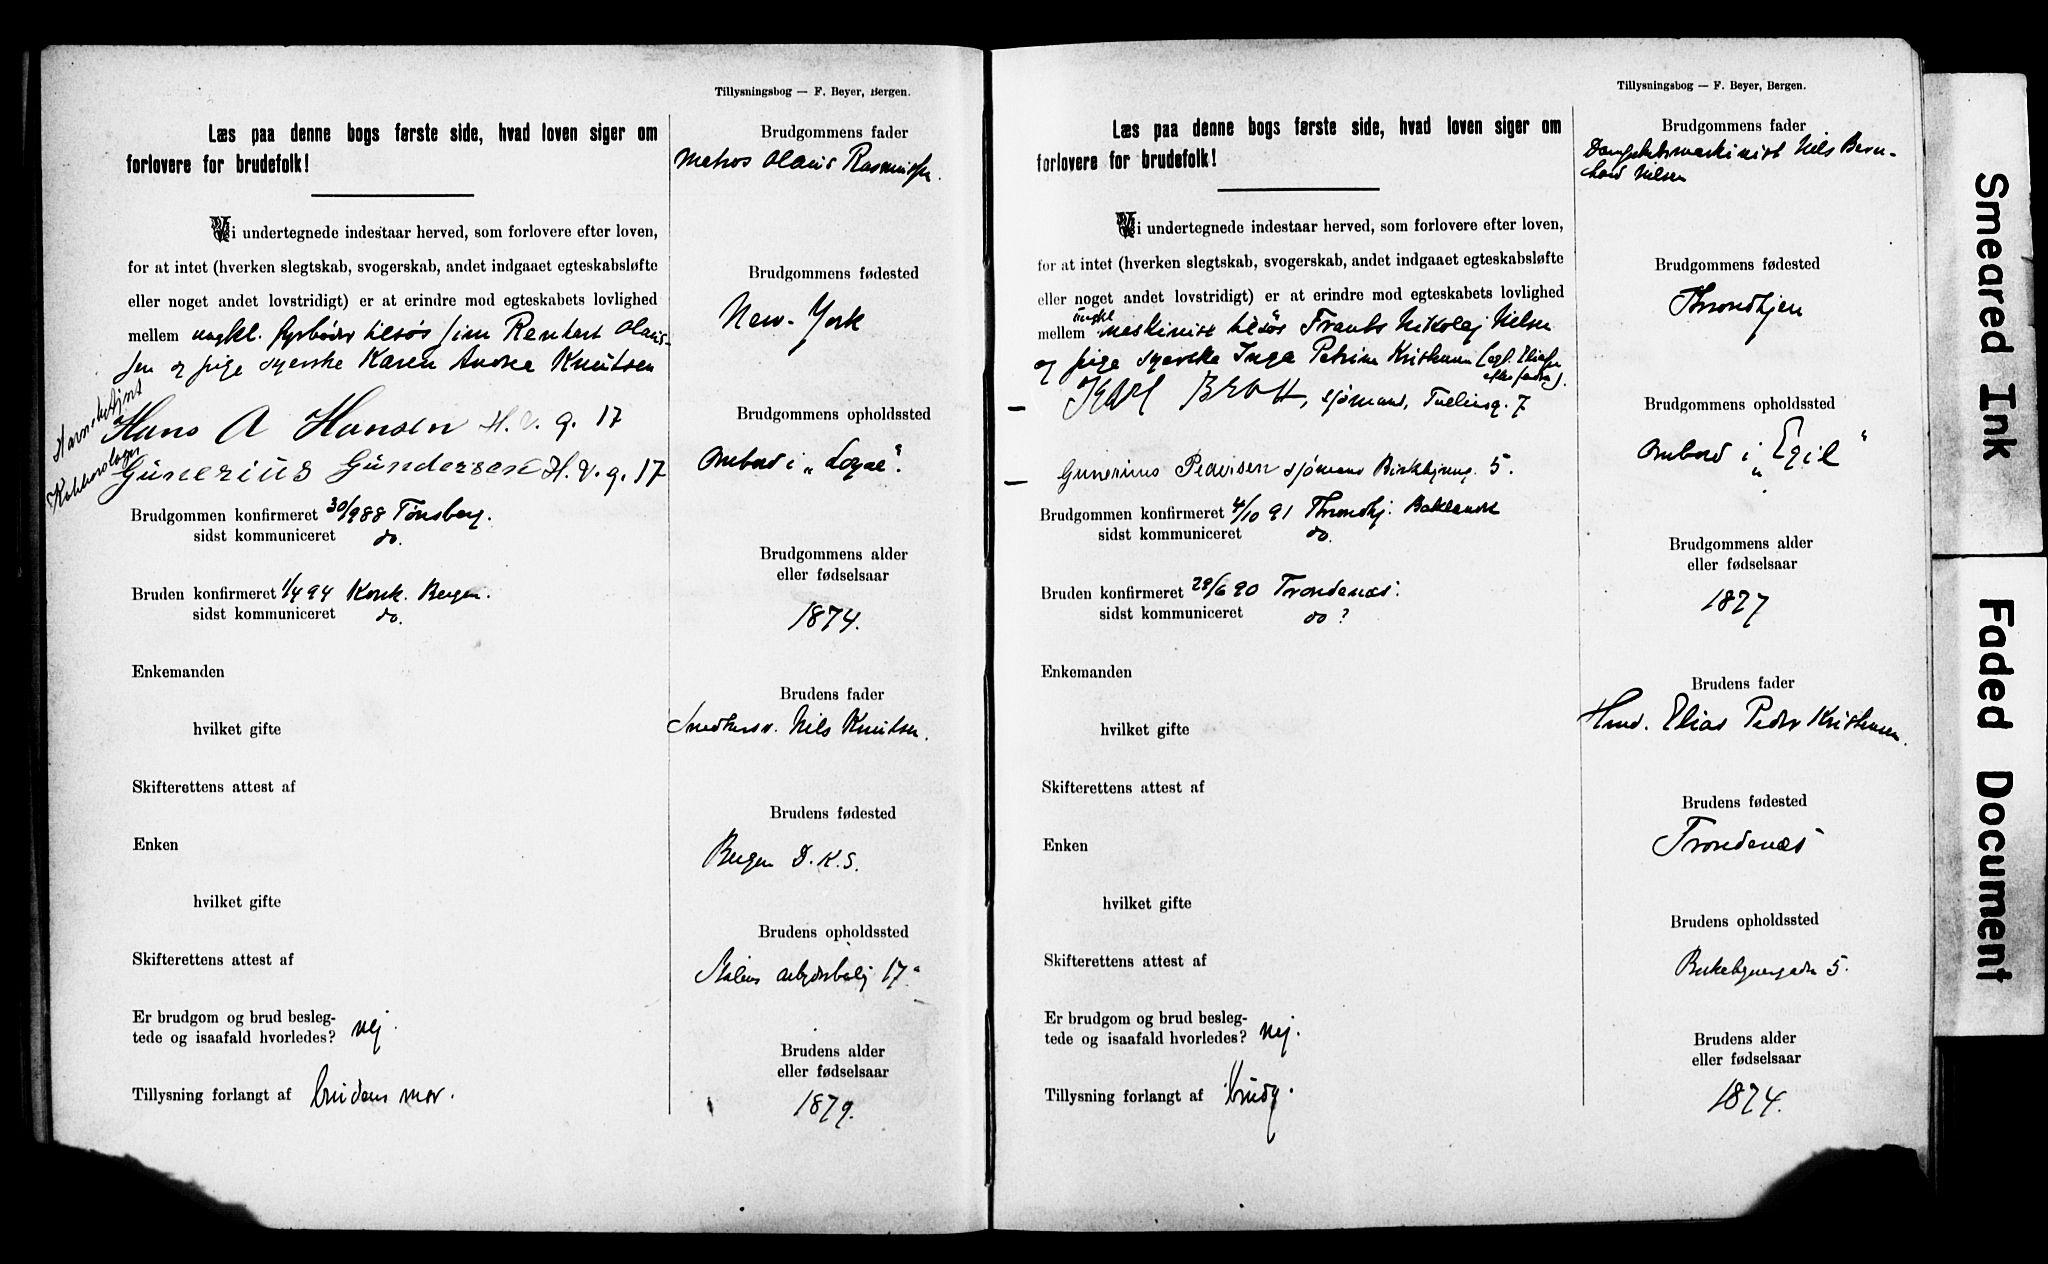 Tillysningsbog — F. Beyer, Bergen.
Læs paa denne bogs første side, hvad loven siger om
forlovere for brudefolk!
Vi undertegnede indestaar herved, som forlovere efter loven,
for at intet (hverken slegtskab, svogerskab, andet indgaaet egteskabsløfte
eller noget andet lovstridigt) er at erindre mod egteskabets lovlighed
mellem ungkl. fyrbøder tilsøs Jim Renhart Olaus-
sen og pige syerske Karen Andrea Knutsen
Havnebetjent
Hans A Hansen H. V. g. 17
Gunerius Gundersen H. V. g. 17
Brudgommen konfirmeret 30/9 88 Tønsberg.
sidst kommuniceret do.
Bruden konfirmeret 1/4 94 Korsk. Bergen.
sidst kommuniceret do.
Enkemanden
hvilket gifte
Skifterettens attest af
Enken
hvilket gifte
Skifterettens attest af
Er brudgom og brud besleg-
tede og isaafald hvorledes? nej.
Tillysning forlangt af brudens mor.
Brudgommens fader
Matros Olaus Rasmussen.
Brudgommens fødested
New-York
Brudgommens opholdssted
Ombord i „
Brudgommens alder
eller fødselsaar
1874.
Brudens fader
Snedkersv. Nils Knutsen.
Brudens fødested
Bergen D.K.S.
Brudens opholdssted
arbeiderbolig 17
Brudens alder
eller fødselsaar
1879.
Tillysningsbog — F. Beyer, Bergen.
Læs paa denne bogs første side, hvad loven siger om
forlovere for brudefolk!
Vi undertegnede indestaar herved, som forlovere efter loven,
for at intet (hverken slegtskab, svogerskab, andet indgaaet egteskabsløfte
eller noget andet lovstridigt) er at erindre mod egteskabets lovlighed
ungkl
mellem maskinist tilsøs Frants Nikolaj Nilsen
og pige syerske Inga Petrine Kristensen (egl. Eliassen
efter fader).
Karl Brott, sjømand, Tullinsg. 7
Gunerius Pedersen sjømand Birkebjnerg. 5.
Brudgommen konfirmeret 4/10 91 Throndhj: Baklandet
sidst kommuniceret do.
Bruden konfirmeret 29/6 90 Trondenæs:
sidst kommuniceret do?
Enkemanden
hvilket gifte
Skifterettens attest af
Enken
hvilket gifte
Skifterettens attest af
Er brudgom og brud besleg-
tede og isaafald hvorledes? nej.
Tillysning forlangt af brudg.
Brudgommens fader
Dampskibsmaskinist Nils Bern-
hard Nilsen
Brudgommens fødested
Throndhjem
Brudgommens opholdssted
Ombord i „Egil“
Brudgommens alder
eller fødselsaar
1877
Brudens fader
Hmd. Elias Peder Kristensen.
Brudens fødested
Trondenæs
Brudens opholdssted
Birkebjnergaden 5.
Brudens alder
eller fødselsaar
1874.
Smeared Ink
Faded Document